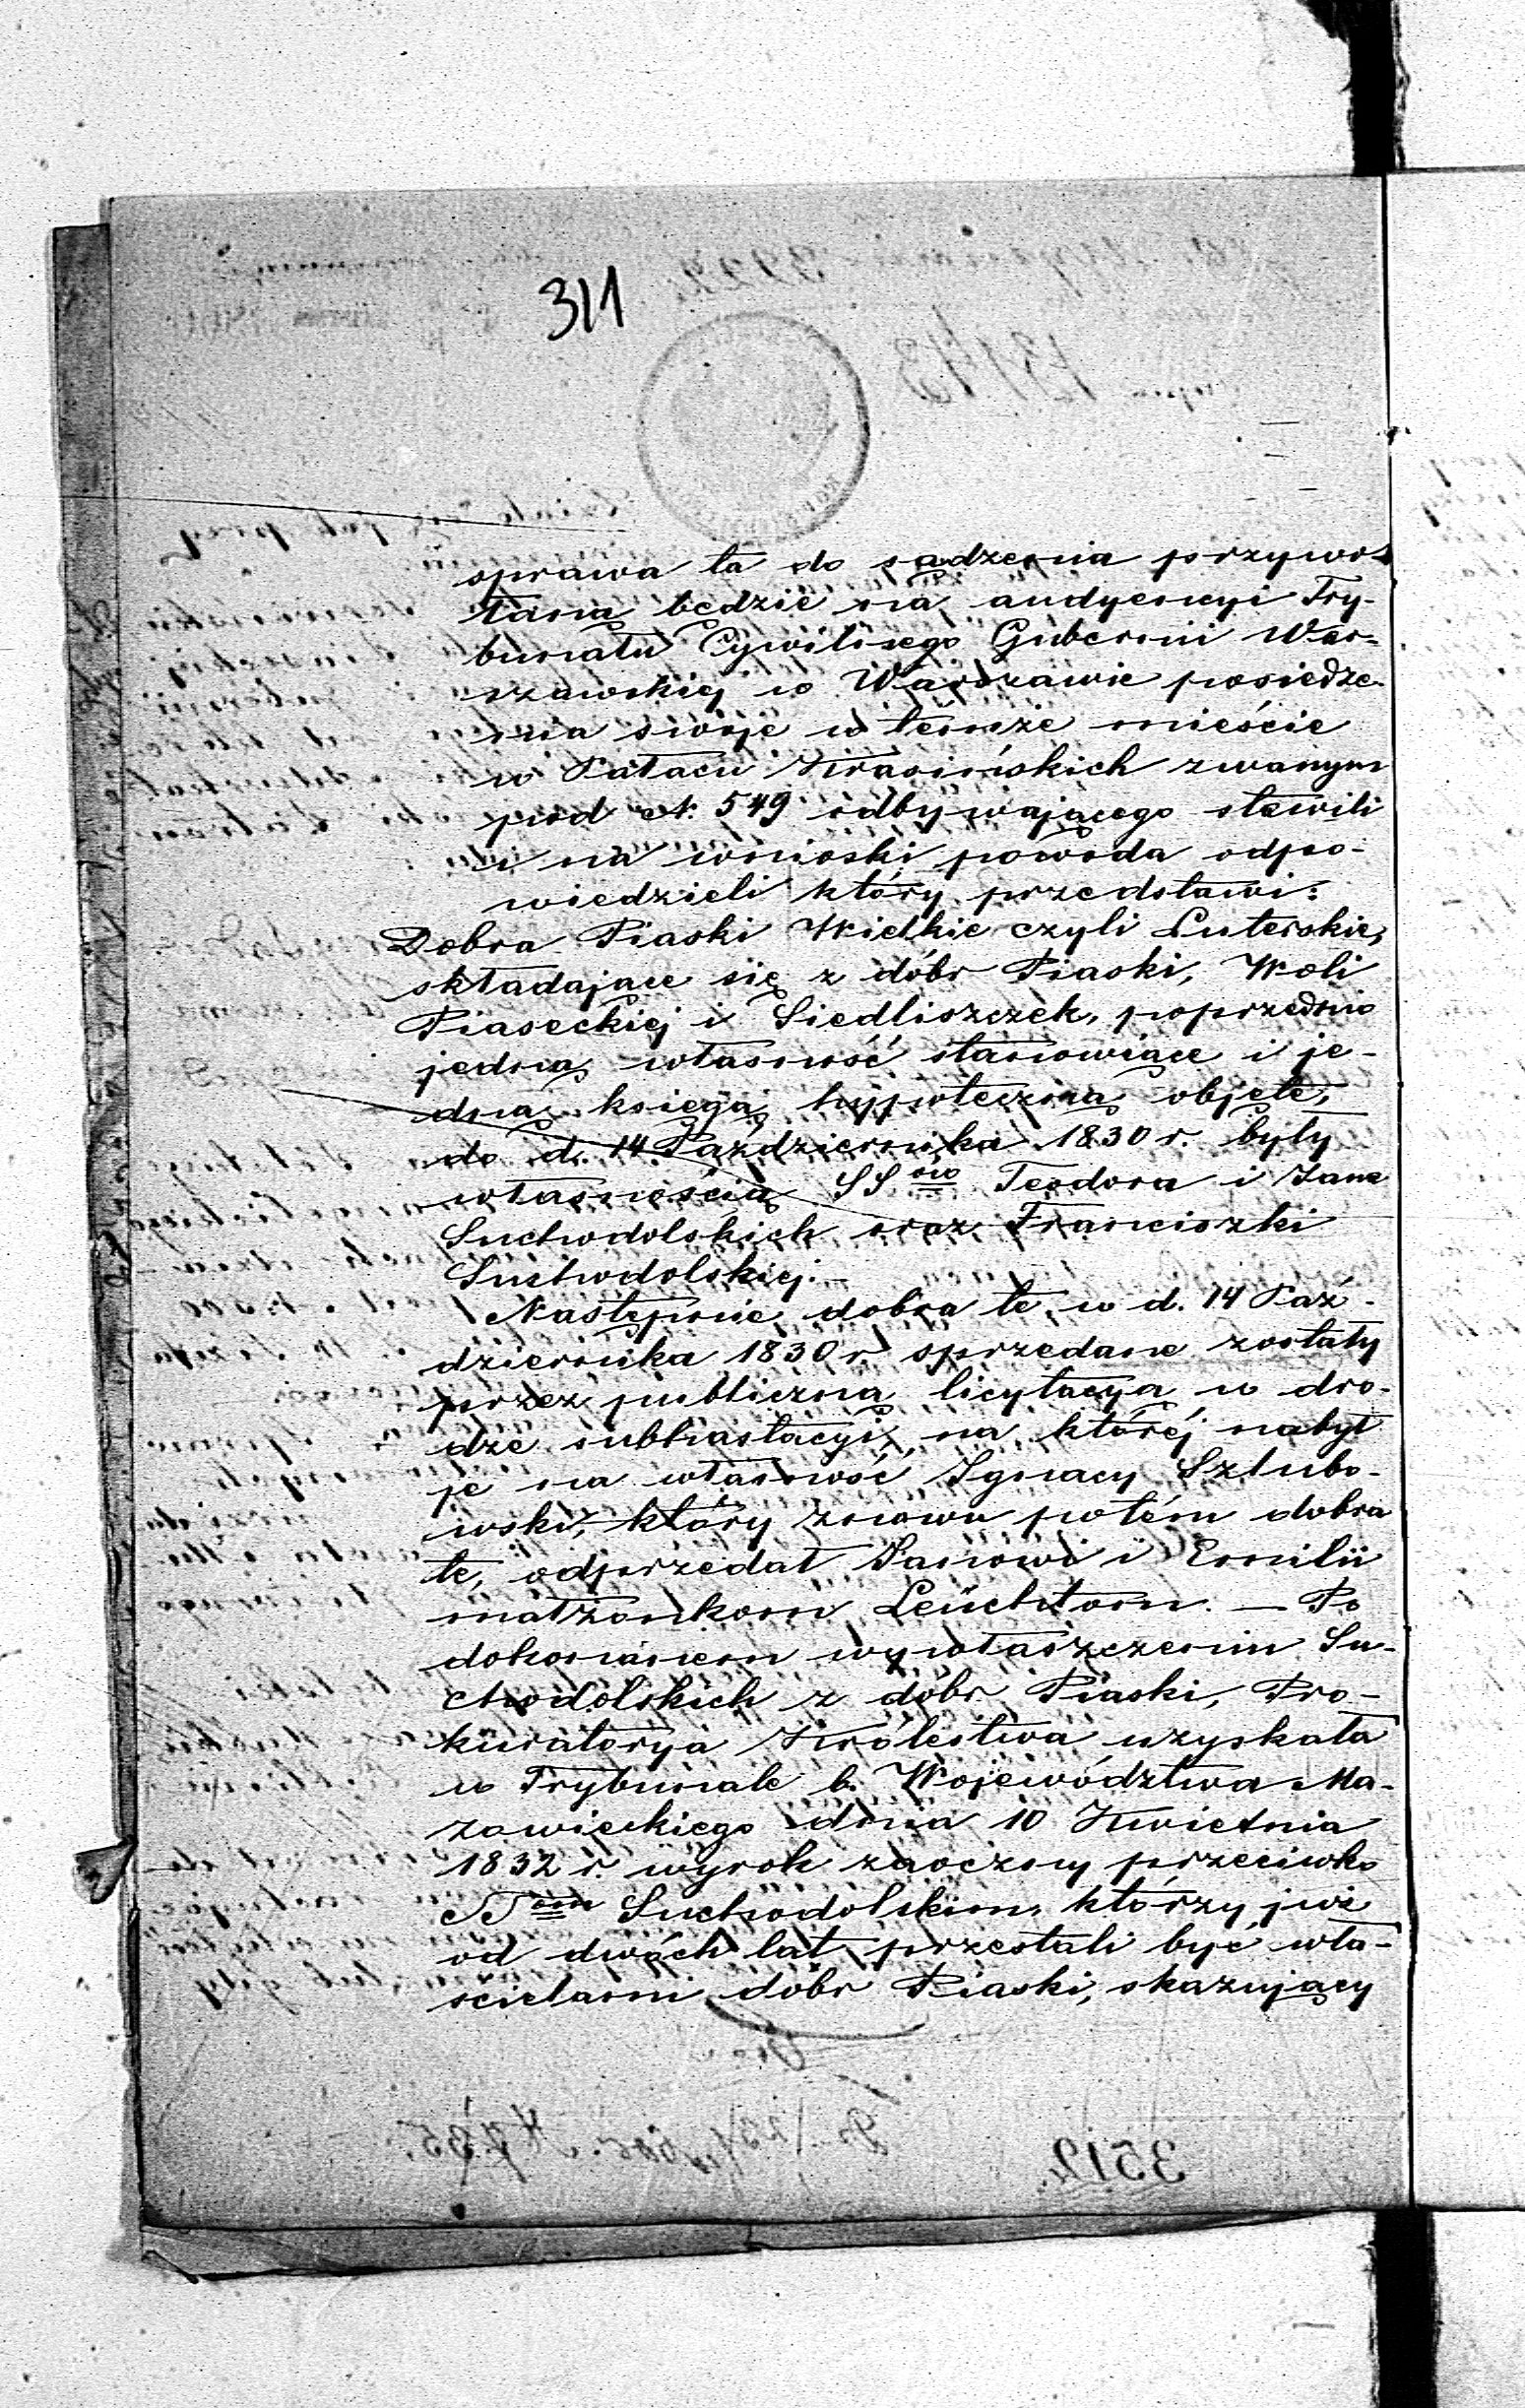 311
sprawa ta do sądzenia przywo-
łaną będzie na audyencyi Try-
bunału Cywilnego Gubernii War-
szawskiej w Warszawie posiedze-
nia swoje w temże mieście
w Pałacu Krasińskich zwanym
pod N. 549 odbywającego stawili
i na wnioski powoda odpo-
wiedzieli który przedstawi:
Dobra Piaski Wielkie czyli Luterskie,
składające się z dóbr Piaski, Woli
Piaseckiej i Siedliszczek, poprzednio
jedną własność stanowiące i je-
dną księgą hypoteczną objęte,
do d. 14 Października 1830 r. były
własnością SSów Teodora i Jana
Suchodolskich oraz Franciszki
Suchodolskiej.—
Następnie dobra te w d. 14 Paź-
dziernika 1830 r sprzedane zostały
przez publiczną licytacyą w dro-
dze subhastacyi, na któréj nabył
je na własność Ignacy Szlubo-
wski, który znowu potém dobra
te, odprzedał Janowi i Emilii
małżonkom Leüchtom. — Po
dokonanem wywłaszczeniu Su-
chodolskich z dóbr Piaski, Pro-
kuratorya Królestwa uzyskała
w Trybunale b. Województwa Ma-
zowieckiego dnia 10 Kwietnia
1832 r. wyrok zaoczny przeciwko
SSom Suchodolskim, którzy już
od dwóch lat przestali być wła-
scicielami dóbr Piaski, skazujący
3512